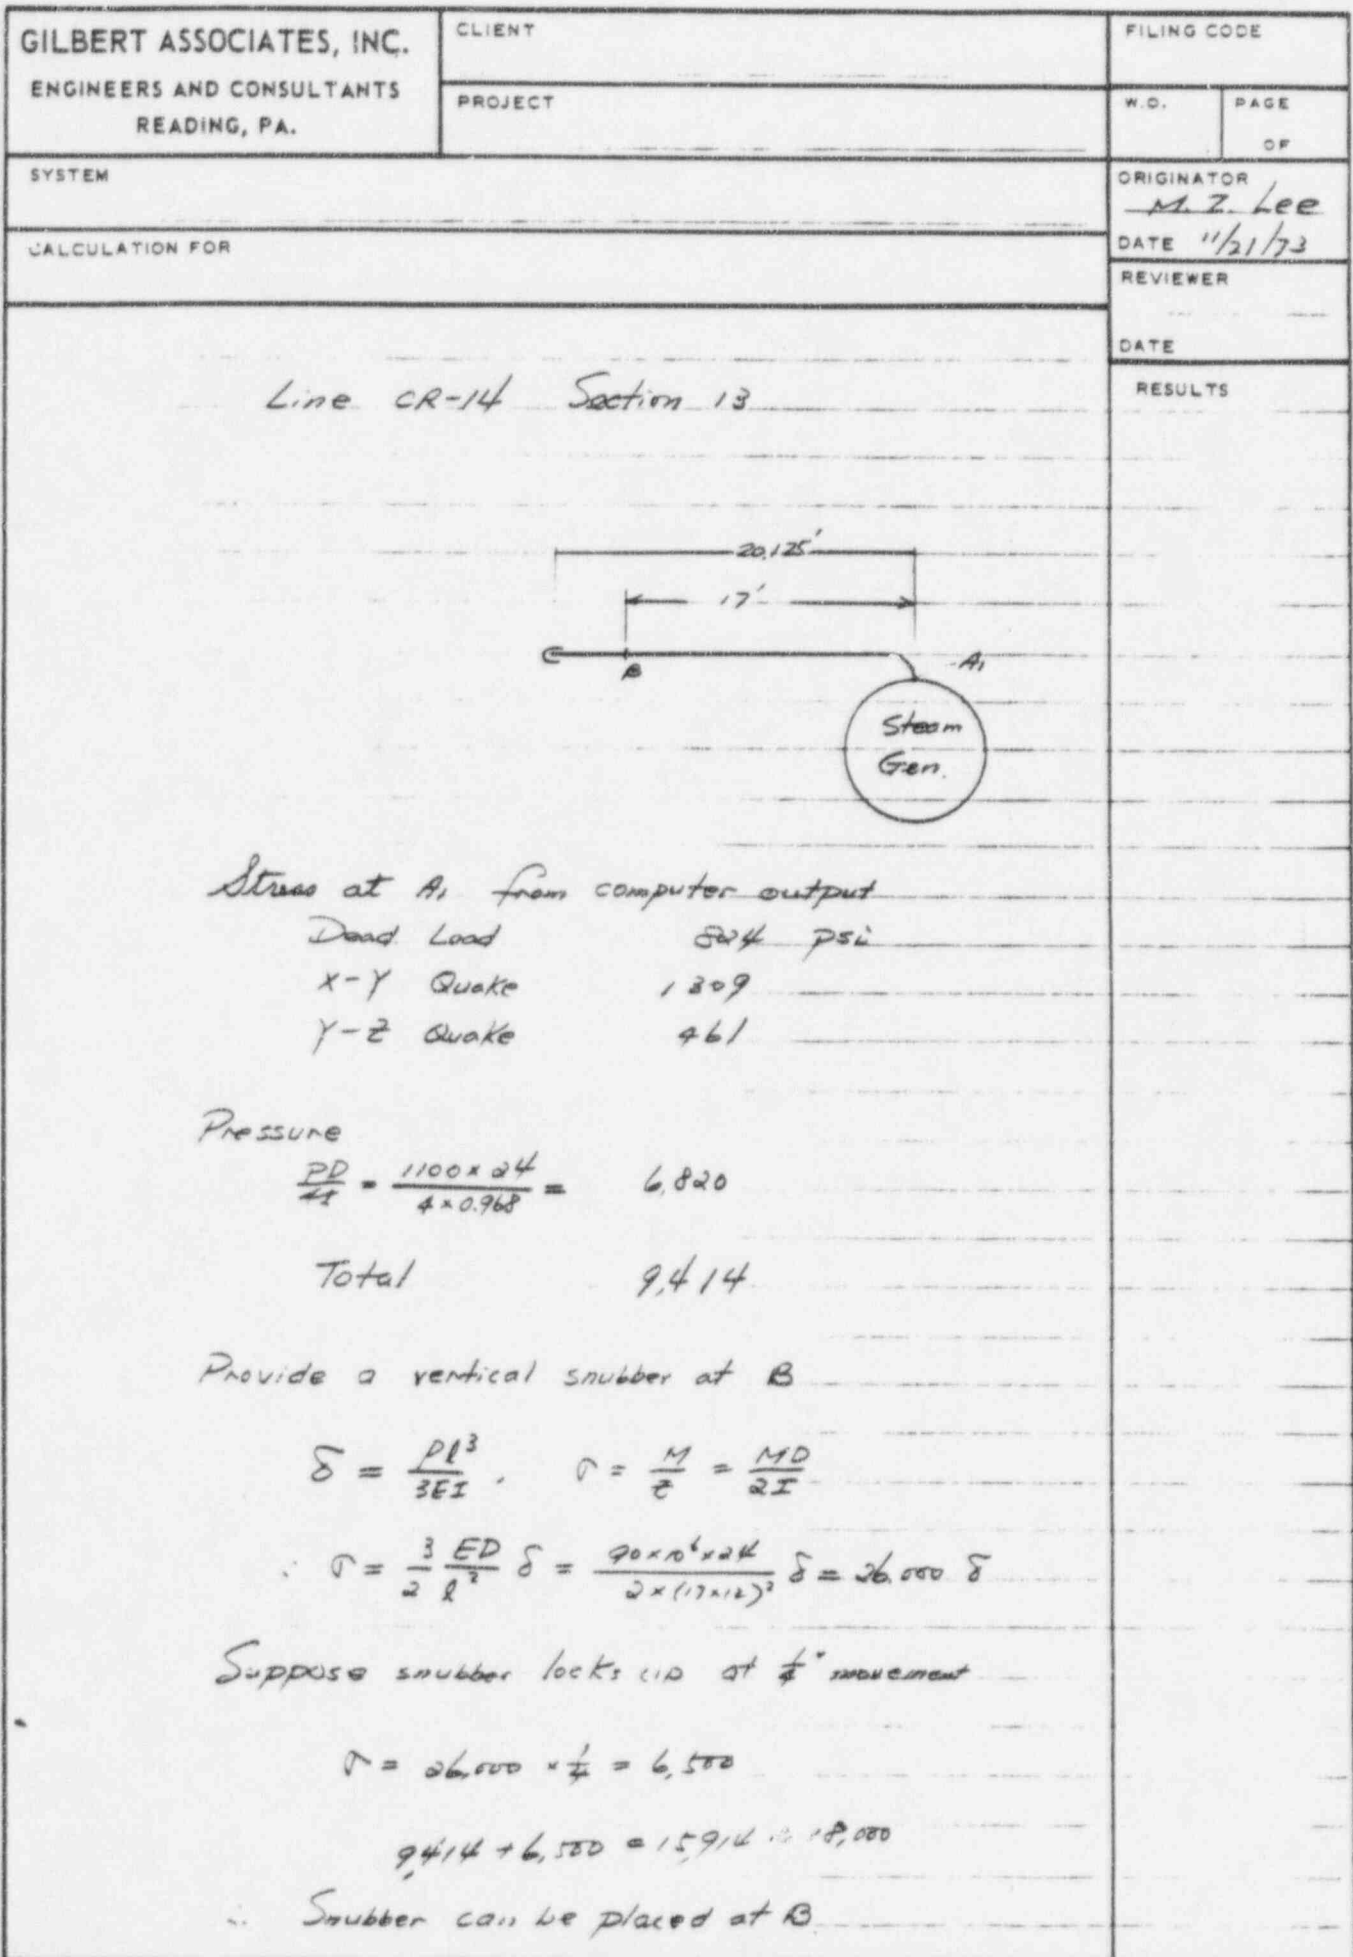 GILBERT ASSOCIATES, INC.
ENGINEERS AND CONSULTANTS
READING, PA.
CLIENT
PROJECT
FILING CODE
W.O.
PAGE
OF
SYSTEM
CALCULATION FOR
ORIGINATOR
M. Z. Lee
DATE 11/21/73
REVIEWER
DATE
RESULTS
Line CR-14 Section 13
20.125'
17'
C
B
A₁
Steam
Gen.
Stress at A₁ from computer output
Dead Load 824 psi
X-Y Quake 1309
Y-Z Quake 461
Pressure
PD/4t = 1100 × 24 / 4 × 0.968 = 6,820
Total 9,414
Provide a vertical snubber at B
δ = Pl³/3EI , σ = M/Z = MD/2I
∴ σ = 3/2 ED/l² δ = 90×10⁶×24 / 2×(17×12)² δ = 26,000 δ
Suppose snubber locks up at 1/4" movement
σ = 26,000 × 1/4 = 6,500
9,414 + 6,500 = 15,914 18,000
∴ Snubber can be placed at B